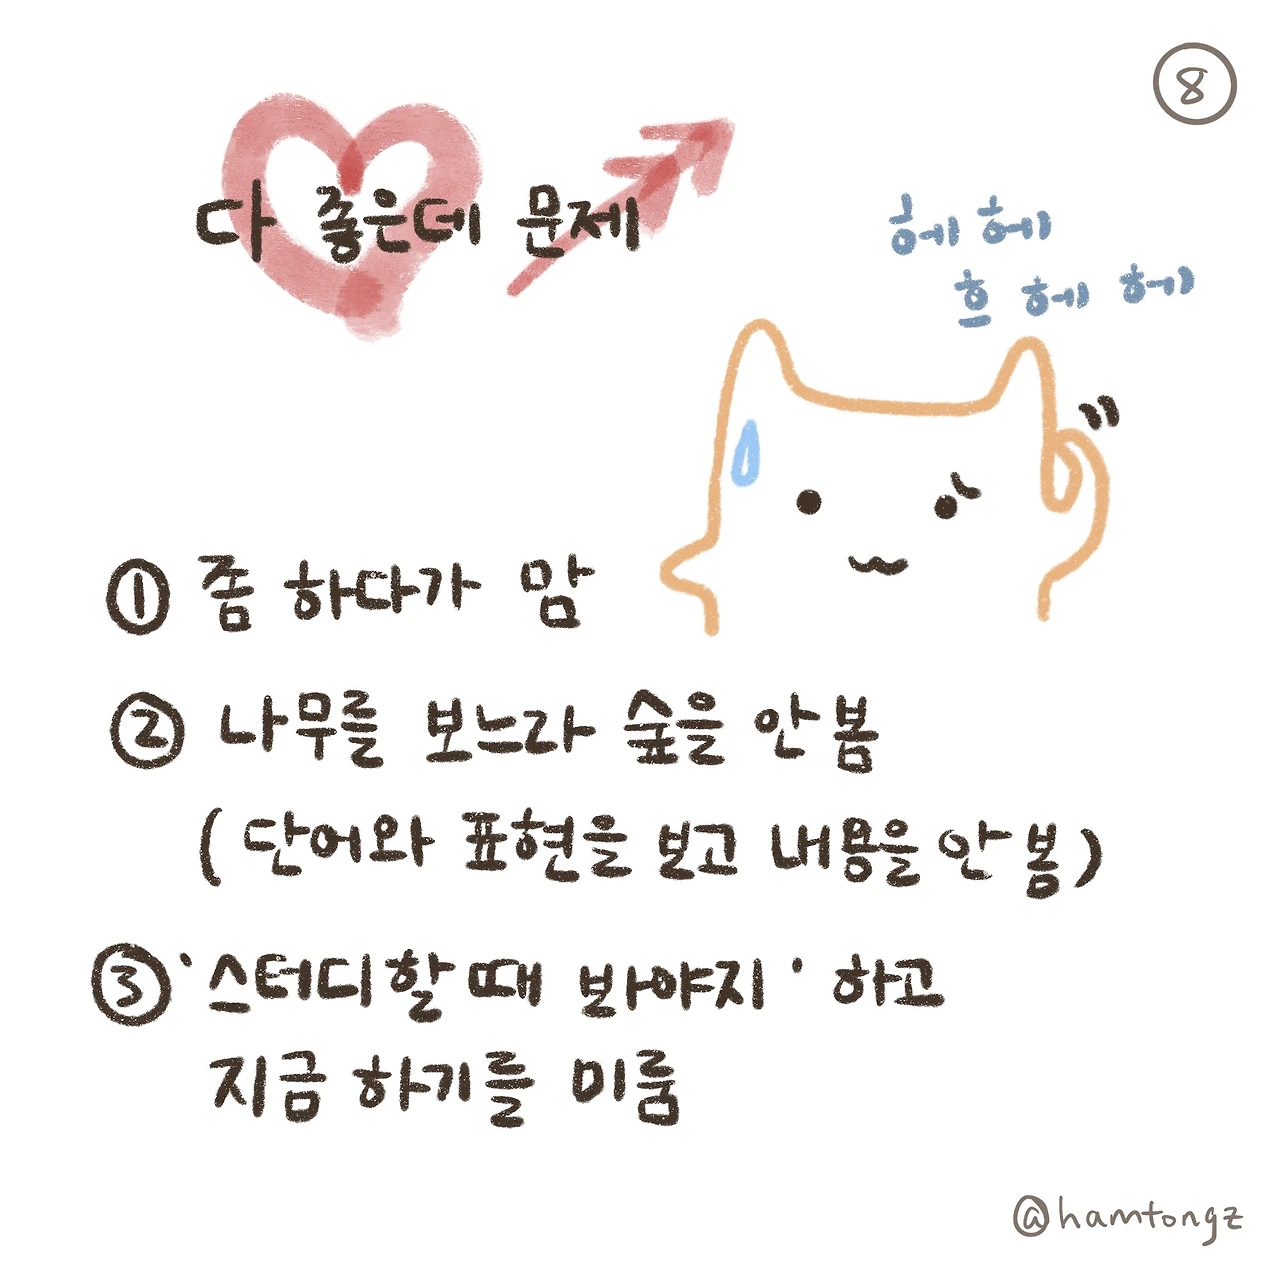 ⑧
다 좋은데 문제
헤헤
흐헤헤
① 좀 하다가 맘
② 나무를 보느라 숲을 안 봄
(단어와 표현을 보고 내용을 안 봄)
③ '스터디할 때 봐야지' 하고
지금 하기를 미룸
@hamtongz